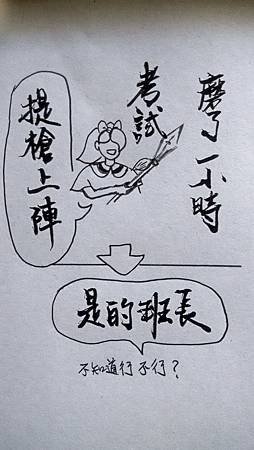 磨了一小時
考試
提槍上陣
是的班長
不知道行不行？